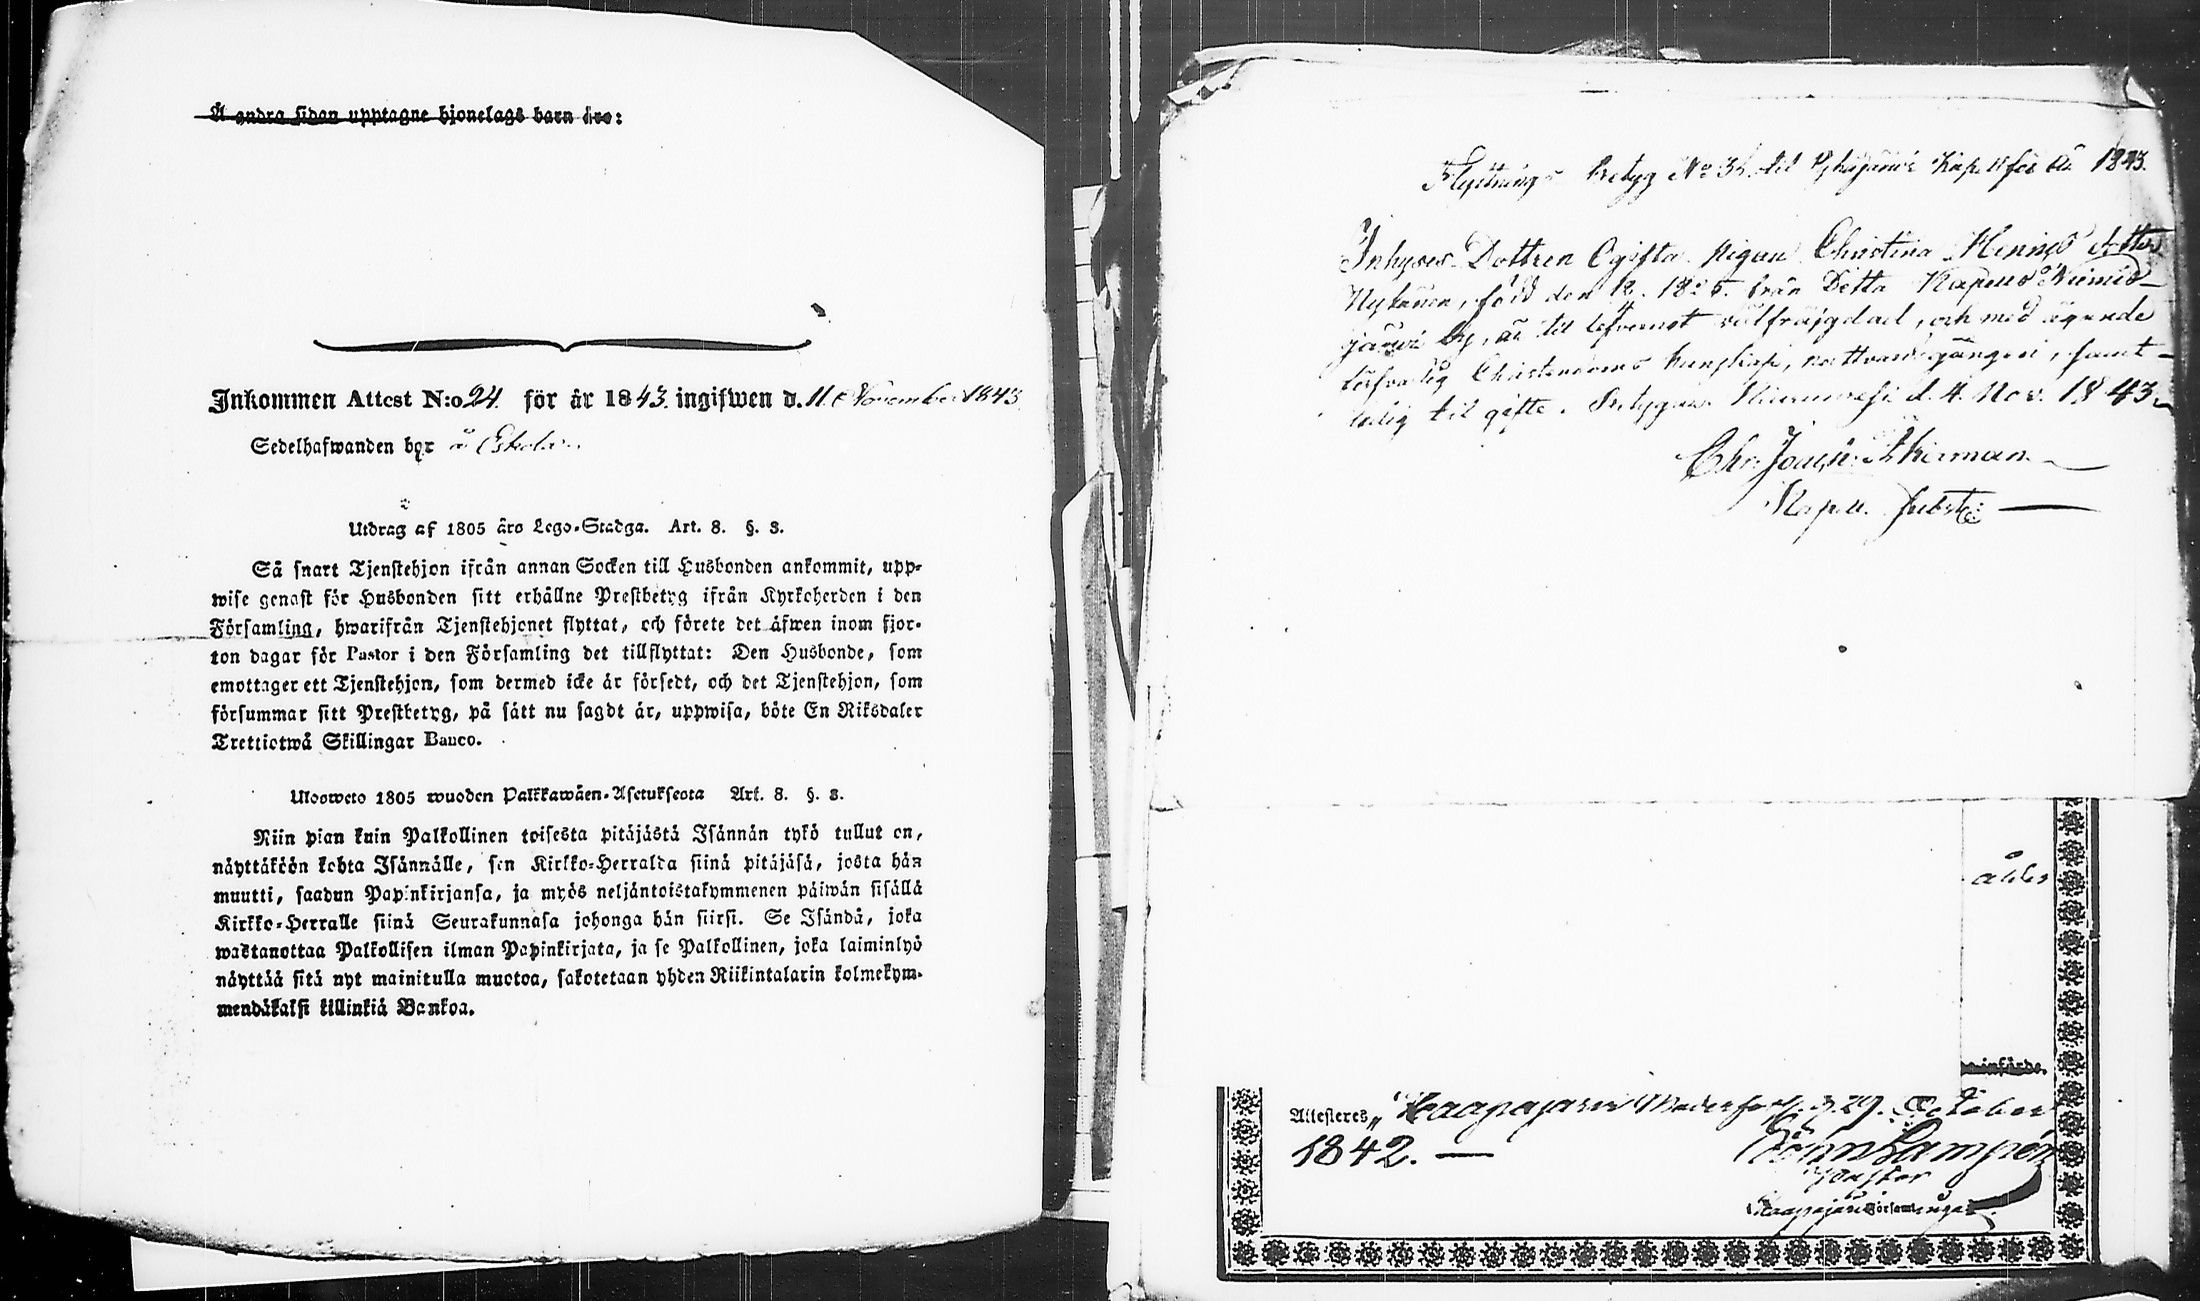 Å andra sidan upptagne hjonelags barn äro:
Inkommen Attest N:o 24. för år 1843. ingifwen d. 11. November 1843.
Sedelhafwanden bor å Eskola
Utdrag af 1805 års Lego-Stadga. Art. 8. §. 3.
Så snart Tjenstehjon ifrån annan Socken till Husbonden ankommit, upp-
wise genast för Husbonden sitt erhållne Prestbetyg ifrån Kyrkoherden i den
Församling, hwarifrån Tjenstehjonet flyttat, och förete det äfwen inom fjor-
ton dagar för Pastor i den Församling det tillflyttat: Den Husbonde, som
emottager ett Tjenstehjon, som dermed icke är försedt, och det Tjenstehjon, som
försummar sitt Prestbetyg, på sätt nu sagdt är, uppwisa, böte En Riksdaler
Trettiotwå Skillingar Banco.
Ulosweto 1805 wuoden Palkkawäen-Asetuksesta Art. 8. §. 3.
Niin pian kuin Palkollinen toisesta pitäjästä Isännän tykö tullut on,
näyttäköön kohta Isännälle, sen Kirkko-Herralda siinä pitäjäsä, josta hän
muutti, saadun Papinkirjansa, ja myös neljäntoistakymmenen päiwän sisällä
Kirkko-Herralle siinä Seurakunnasa johonga hän siirsi. Se Isändä, joka
wastanottaa Palkollisen ilman Papinkirjata, ja se Palkollinen, joka laiminlyö
näyttää sitä nyt mainitulla muotoa, sakotetaan yhden Riikintalarin kolmekym-
mendäkaksi killinkiä Bankoa.
Flyttnings Betyg No 3 til Pyhäjärvi Kapell för år 1843.
Inhyses Dottren Ogifta Pigan Christina Henricsdotter
Nykänen, född den 12. från Detta Kapells Niemis-
järwi by, är til lefvernet välfräjgdad, och med ägande
försvarlig Christendoms kunskap, nattvardsgången, samt
ledig til gifte. Betygar Kiuruvesi d. 4. Nov. 1843.
Chr. Joach: Akerman
Kapell.
ålder
Attesteras, Haapajärvi Moderförs. d. 29. October
1842. —
Lampén
Pastor
Haapajärvi Församlingar.